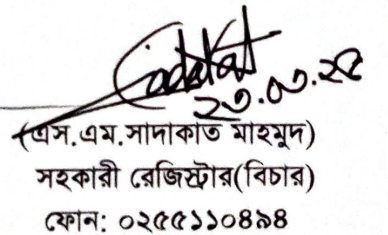 ২৩.০৩.২৫
(এস.এম.সাদাকাত মাহমুদ)
সহকারী রেজিস্ট্রার(বিচার)
ফোন: ০২৫৫১১০৪৯৪